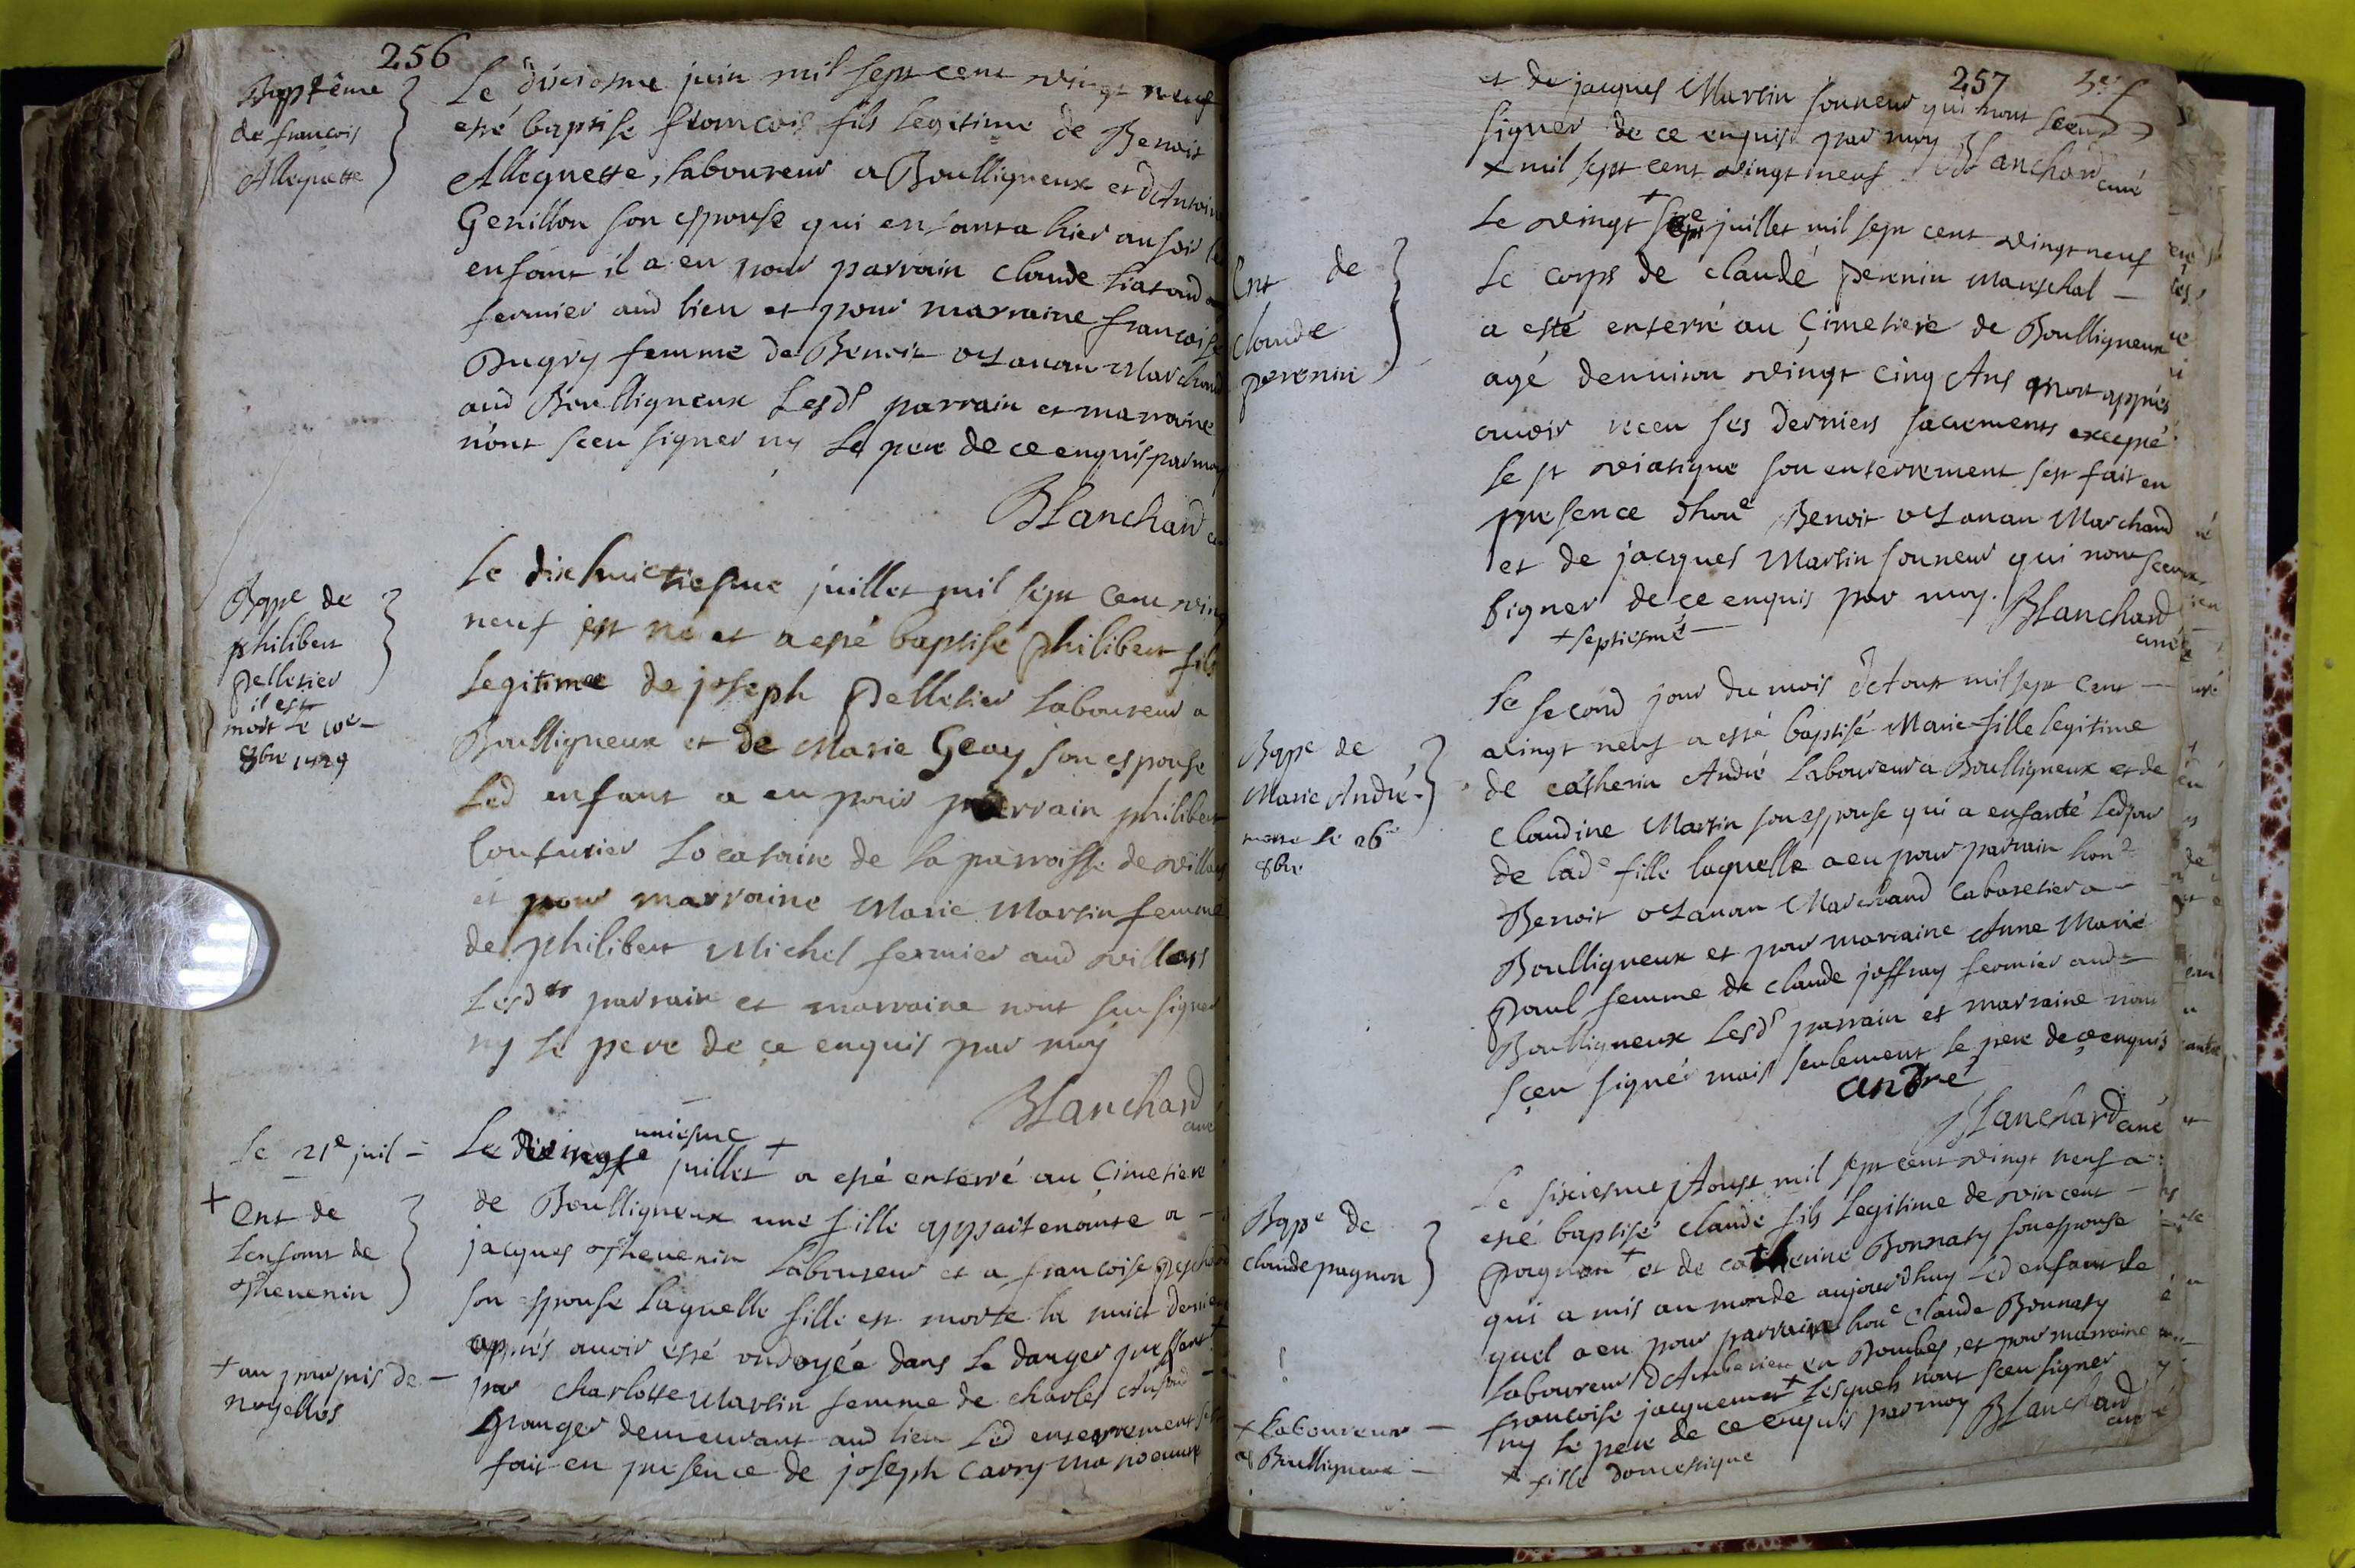 256
Baptême
de françois
Allognette
Le dixiesme juin mil sept cent vingt neuf
esté baptisé francois fils legitime de Benoit
Allognette, laboureur a Boulligneux et d'Antoin
Genillon son espouse qui enfanta hier au soir le
enfant il a eu pour parrain Claude
fermier aud lieu et pour marraine francoise
Dugry femme de Benoit Marchand
aud Boulligneux Lesds parrain et marraine
n'ont sceu signer ny le pere de ce enquis par moy
Blanchard
Bapse de
philibert
pelletier
il est
mort le 10e
8bre 1729
Le dixhuictiesme juillet mil sept cent ving
neuf est né et a esté baptisé philibert fils
legitime de joseph pelletier laboureur a
Boulligneux et de Marie Geay son espouse
Led enfant a eu pour parrain philibert
Couturier Locataire de la parroisse de villars
et pour marraine Marie Martin femme
de philibert Michel fermier aud villars
Lesdts parrain et marraine nont sceu signer
ny le pere de ce enquis par moy
Blanchard
curé
le 21e juil
+
Ent de
Lenfant de
Thevenin
Le vingt uniesme juillet + a esté enterré au Cimetiere
de Boulligneux une fille appartenante a
jacques Thevenin Laboureur et a francoise
son espouse laquelle fille est morte la nuict derniere
apprés avoir esté ondoyée dans le danger pressant +
par Charlotte Martin femme de charles
granger demeurant aud lieu Led enterrement s'est
fait en presence de joseph Carry manoeuvre
+ au pourpris de
noyelles
257
et de jacques Martin sonneur qui n'ont sceu
signer de ce enquis par moy Blanchard curé
x mil sept cent vingt neuf
Ent de
claude
perenin
Le vingt + sept juillet mil sept cent vingt neuf
Le corps de claude perenin mareschal
a esté enterré au Cimetiere de Boulligneux
agé denviron vingt cinq Ans mort apprés
avoir receu ses derniers sacrements excepté
le st viatique son enterrement sest fait en
presence d'hone Benoit Marchand
et de jacques Martin sonneur qui nont sceu
signer de ce enquis par moy. Blanchard
curé
+ septiesme
Bapse de
Marie André
morte le 26e
8bre
Le second jour du mois d'Aoust mil sept cent
vingt neuf a esté baptisé Marie fille legitime
de catherin André Laboureur a Boulligneux et de
Claudine Martin son espouse qui a enfanté led jour
de lade fille laquelle a eu pour parrain hone
Benoit Marchand Cabaretier a
Boulligneux et pour marraine Anne Marie
paul femme de claude joffray fermier aud
Boulligneux Lesds parrain et marraine nont
sceu signer mais seulement le pere de ce enquis
andré
Blanchard curé
Bapse de
claude pagnon
Le sixiesme Aoust mil sept cent vingt neuf a
esté baptisé claude fils legitime de vincent
pagnon + et de catherine Bonnaty son espouse
qui a mis au monde aujourdhuy led enfant le
quel a eu pour parrain hone claude Bonnaty
laboureur d'Amberieu en Dombes, et pour marraine
francoise jacquemet + lesquels nont sceu signer
ny le pere de ce enquis par moy Blanchard
curé
x laboureur
a Boulligneux
x fille domestique